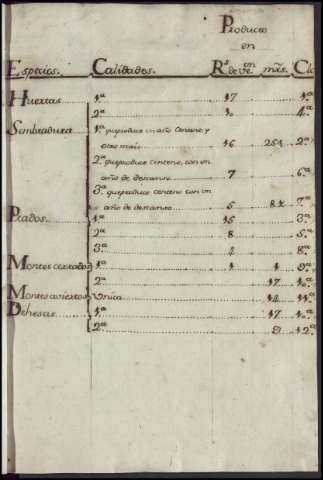 Producto
en
Especies. Calidades. R.s de v.on mrs. Cla
Huertas 1.a 17 1.a
2.a 10 4.a
Sembradura 1.a que produce un año centeno, y
otro maiz 16 2.a
2.a que produce centeno, con un
año de descanso 7 6.a
3.a que produce centeno con un
año de descanso 5 7.a
Prados 1.a 15 3.a
2.a 8 5.a
3.a 4 8.a
Montes cerrados 1.a 1 1 9.a
2.a 17 10.a
Montes aviertos Unica 14 11.a
Dehesas 1.a 17 10.a
2.a 9 12.a